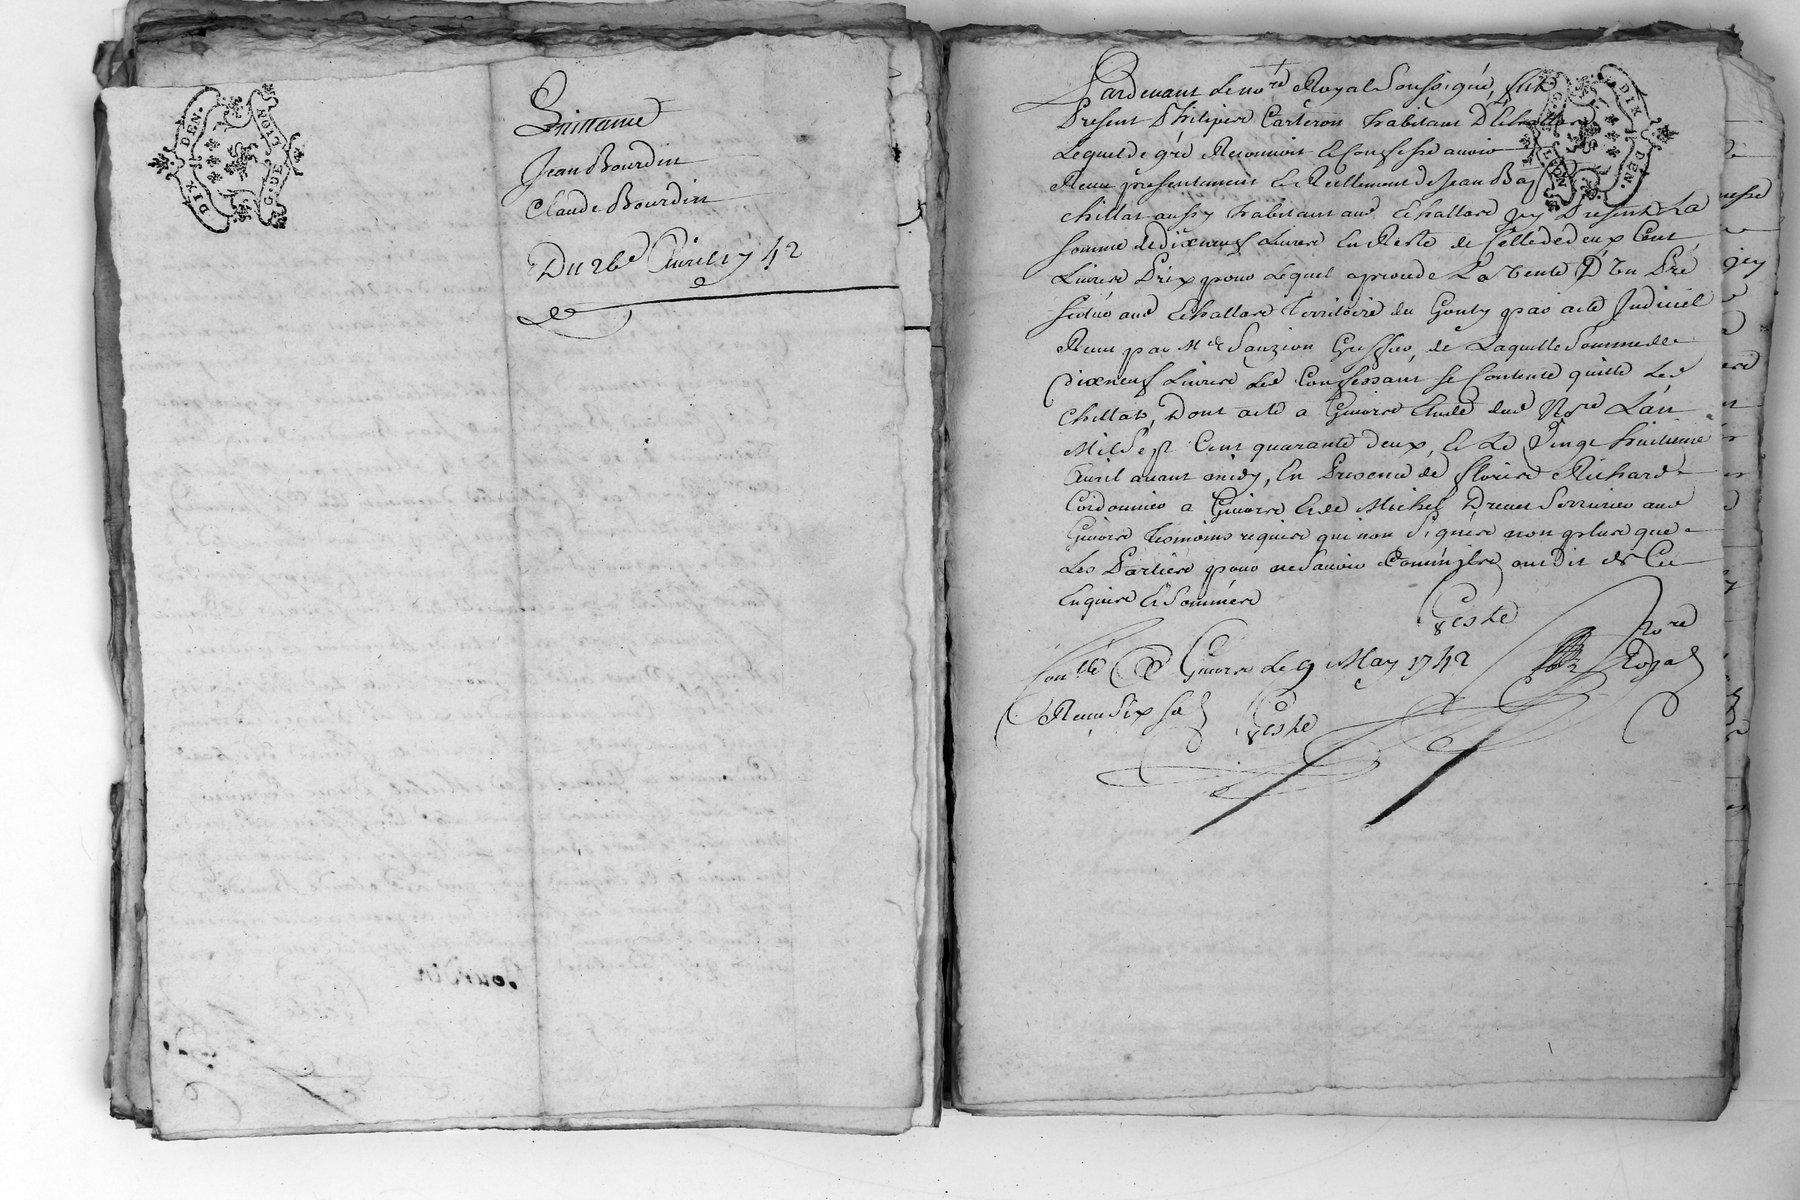 DIX DEN. G. DE LION
Quittance
Jean Bourdin
Claude Bourdin
Du 26e Avril 1742
Pardevant le no.re Royal Soussigné, fut
Present Philipere Carteron habitant D'Echallas
Lequel de gré Reconnoit et Confesse avoir
Receu presentement et Reellement de Jean Bap
Chillat aussy habitant aud Echallas icy Present La
somme de Dixneuf Livres En Reste de Celle de deux Cent
Livres Prix pour Lequel La Vente D'Un Pré
scitué aud Echallas Territoire du Gouty par acte Judiciel
Receu par Me Greffier, de Laquelle Somme de
dixneuf Livres Led Confessant se Contente quitte Led
Chillat, Dont acte a Givors Etude dud No.re L'an
Mil Sept Cent quarante deux, et Le Vingt huitieme
Avril avant midy, En Presence de fleurie Richard
Cordonnier a Givors et de Michel Drevet Serrurier aud
Givors Tesmoins requis qui n'on Signés non plus que
Les Parties pour ne Sçavoir ont Dit de Ce
Enquis et Sommés
Geste
No.re
Royal
Con.lé a Givors Le 9 May 1742
Receu Six s.
Geste
DIX DEN. G. DE LION